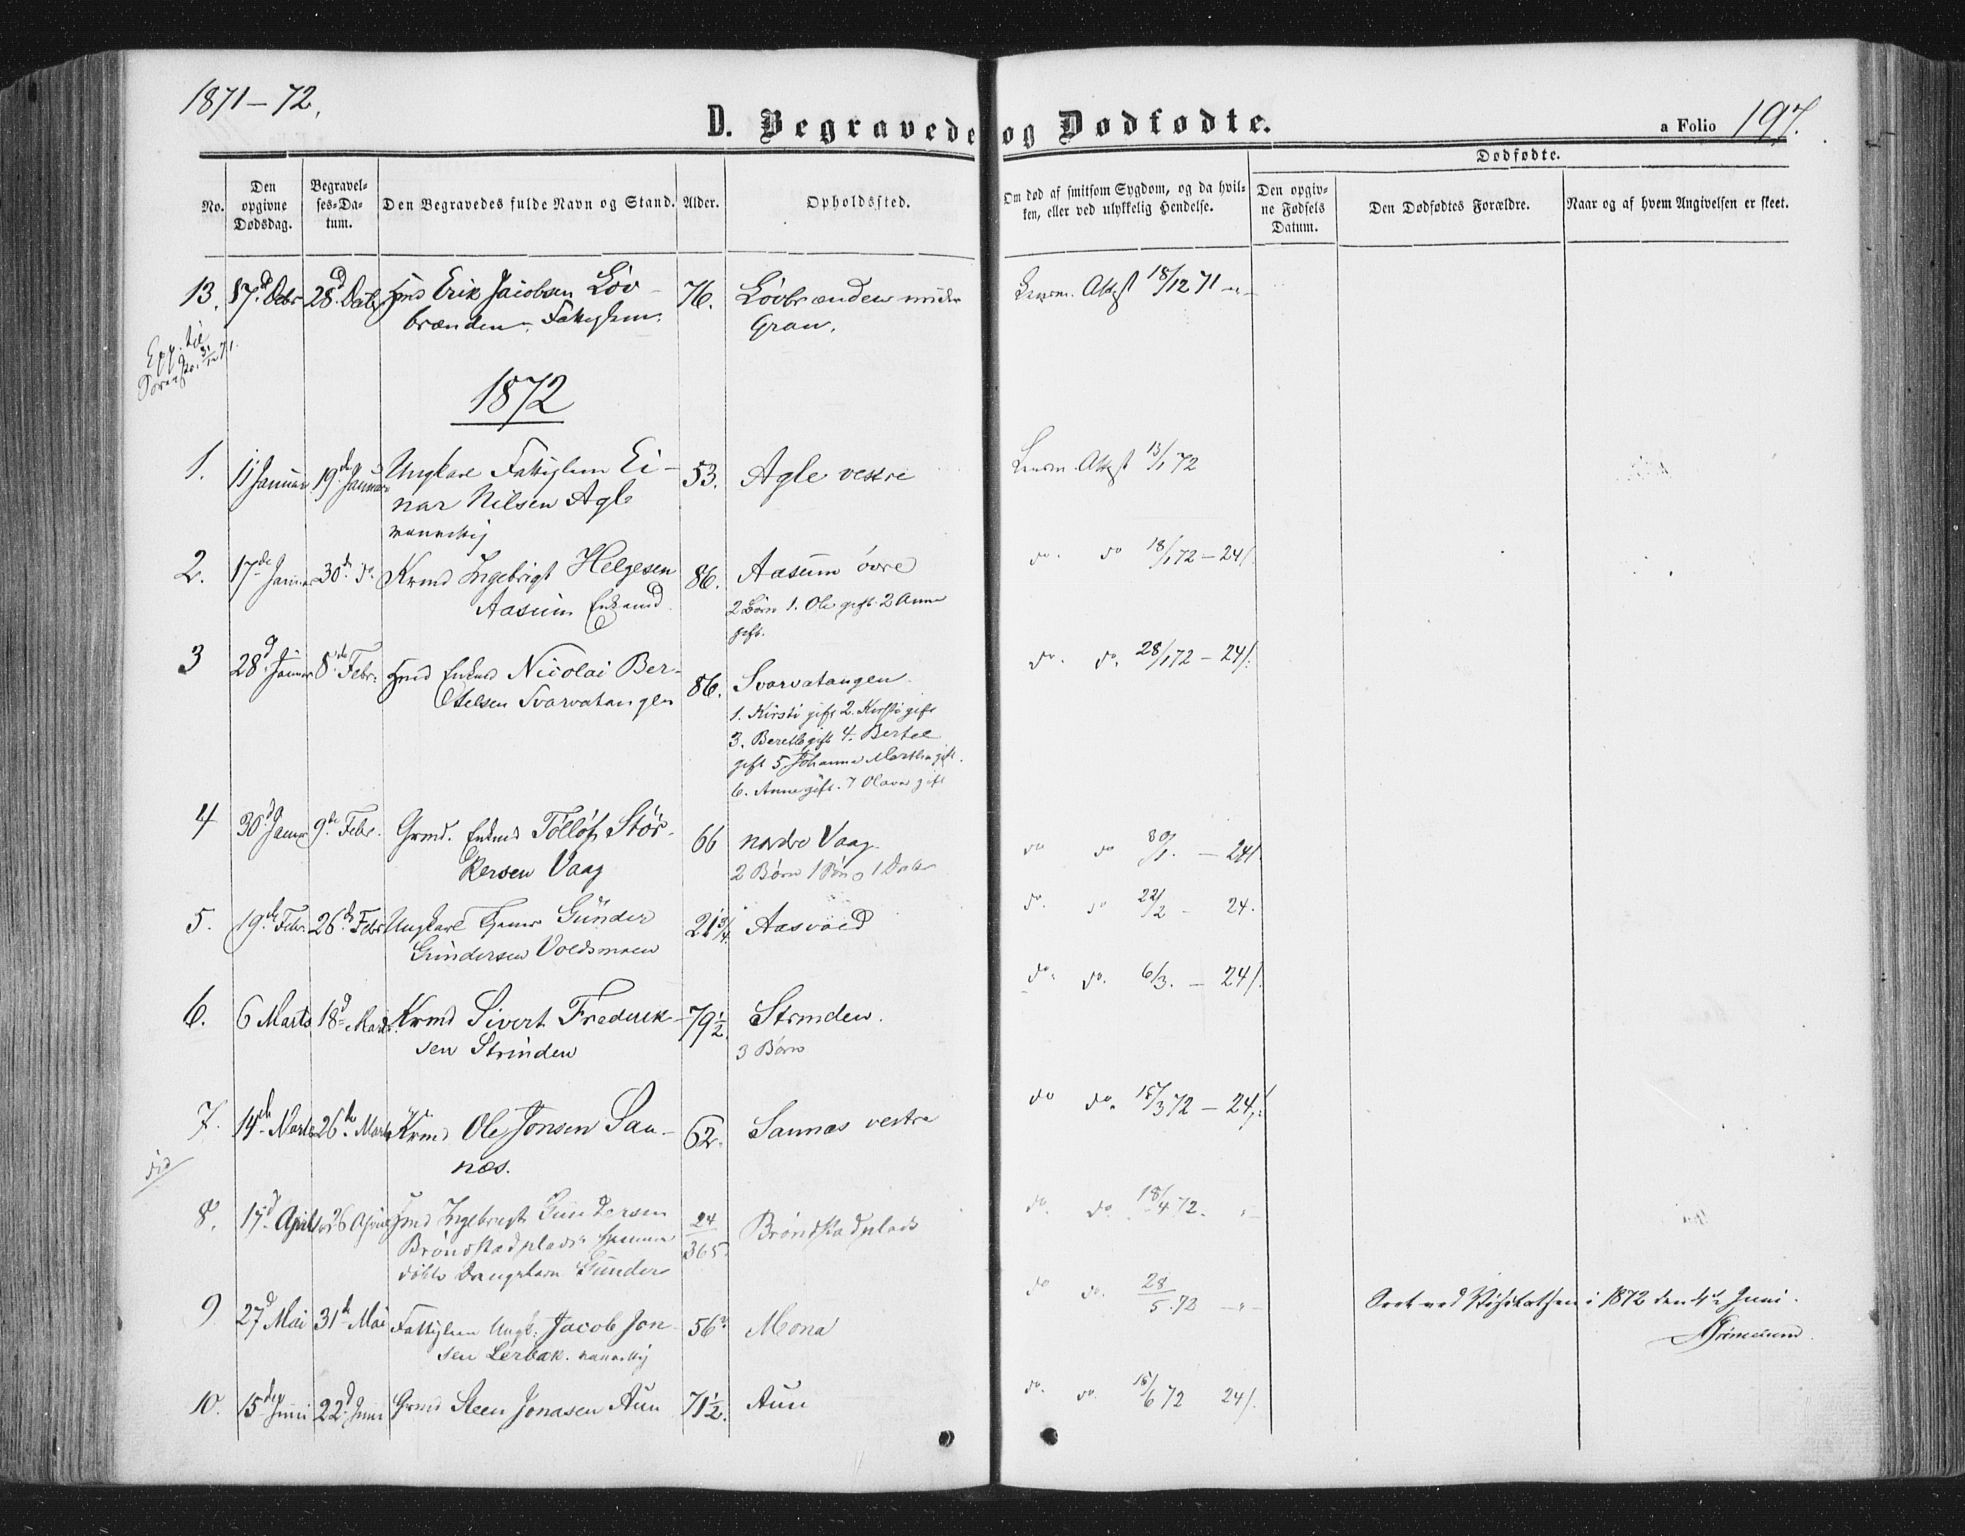 1871-72.
D. Begravede og Dødfødte.
a Folio 197.
No.
Den opgivne Dødsdag.
Begravelses-Datum.
Den Begravedes fulde Navn og Stand.
Alder.
Opholdssted.
Om død af smitsom Sygdom, og da hvilken, eller ved ulykkelig Hendelse.
Dødfødte.
Den opgivne Fødsels Datum.
Den Dødfødtes Forældre.
Naar og af hvem Angivelsen er skeet.
13. 17d Debr 28d Debr Erik Jacobsen Løv- 76. Løvbrænden under Attest 18/12 71
brænden. Fattiglem. Gran.
31/12 71.
1872
1. 11 Januar 19de Januar Ungkarl Fattiglem Ei- 53. Agle vestre Attest 13/1 72
nar Nilsen Agle
2. 17de Januar 30te do Krmd Ingebrigt Helgesen 86. Aasum övre do do 18/1 72 - 24/.
Aasum Enkemd 2 Börn 1. Ole gift. 2 Anne
gift.
3 28d Januar 8de Febr. Nicolai Ber- 86. Svarvatangen. do. do. 28/1 72 - 24/.
telsen Svarvatangen 1. Kirsti gift 2. Kirsti gift
3. Berette gift 4. Bertel
gift 5. Johanna Martha gift.
6. Anne gift. 7 Olava gift
4 30d Januar 9de Febr. Grmd. Tollöf Stör- 66 nordre Vaag do do 30/1. - 24/
kersen Vaag 2 Børn 1 Søn 1 Datter
5. 19de Febr. 26de Febr Ungkarl Gunder 21 3/4. Aasvold do. do 22/2 - 24.
Gundersen Voldsmoen
6. 6 Marts 18d Marts Krmd Sivert Frederik- 79 1/2. Strinden. do. do. 6/3. - 24/.
sen Strinden 3 Børn
7. 14de Marts 26de Marts Krmd Ole Jonsen San- 62. Sannæs vestre do do. 15/3 72 - 24/.
næs.
8. 17d April 26 April Ingebrigt Gundersen 24/365. Bröndstadplads do. do. 18/4 72.
Bröndstadplads
Gunder
9. 27d Mai 31te Mai Fattiglem Ungk: Jacob Jon- 56 Mona do do. 28/5. 72
sen Lerbak.
Seet ved Visitatsen i 1872 den 4de Juni.
10. 15de Juni 22d Juni Grmd Steen Jonasen Aun 71 1/2. Aun do. do. 15/6 72 24/.